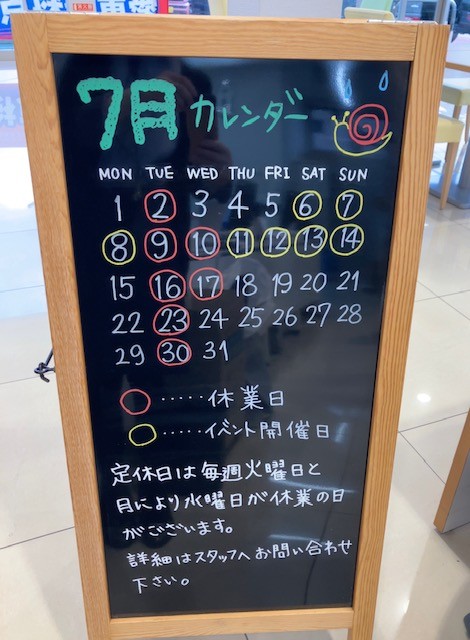 7月 カレンダー
MON TUE WED THU FRI SAT SUN
1 2 3 4 5 6 7
8 9 10 11 12 13 14
15 16 17 18 19 20 21
22 23 24 25 26 27 28
29 30 31
○・・・・・休業日
○・・・・・イベント開催日
定休日は毎週火曜日と
月により水曜日が休業の日
がございます。
詳細はスタッフへお問い合わせ
下さい。